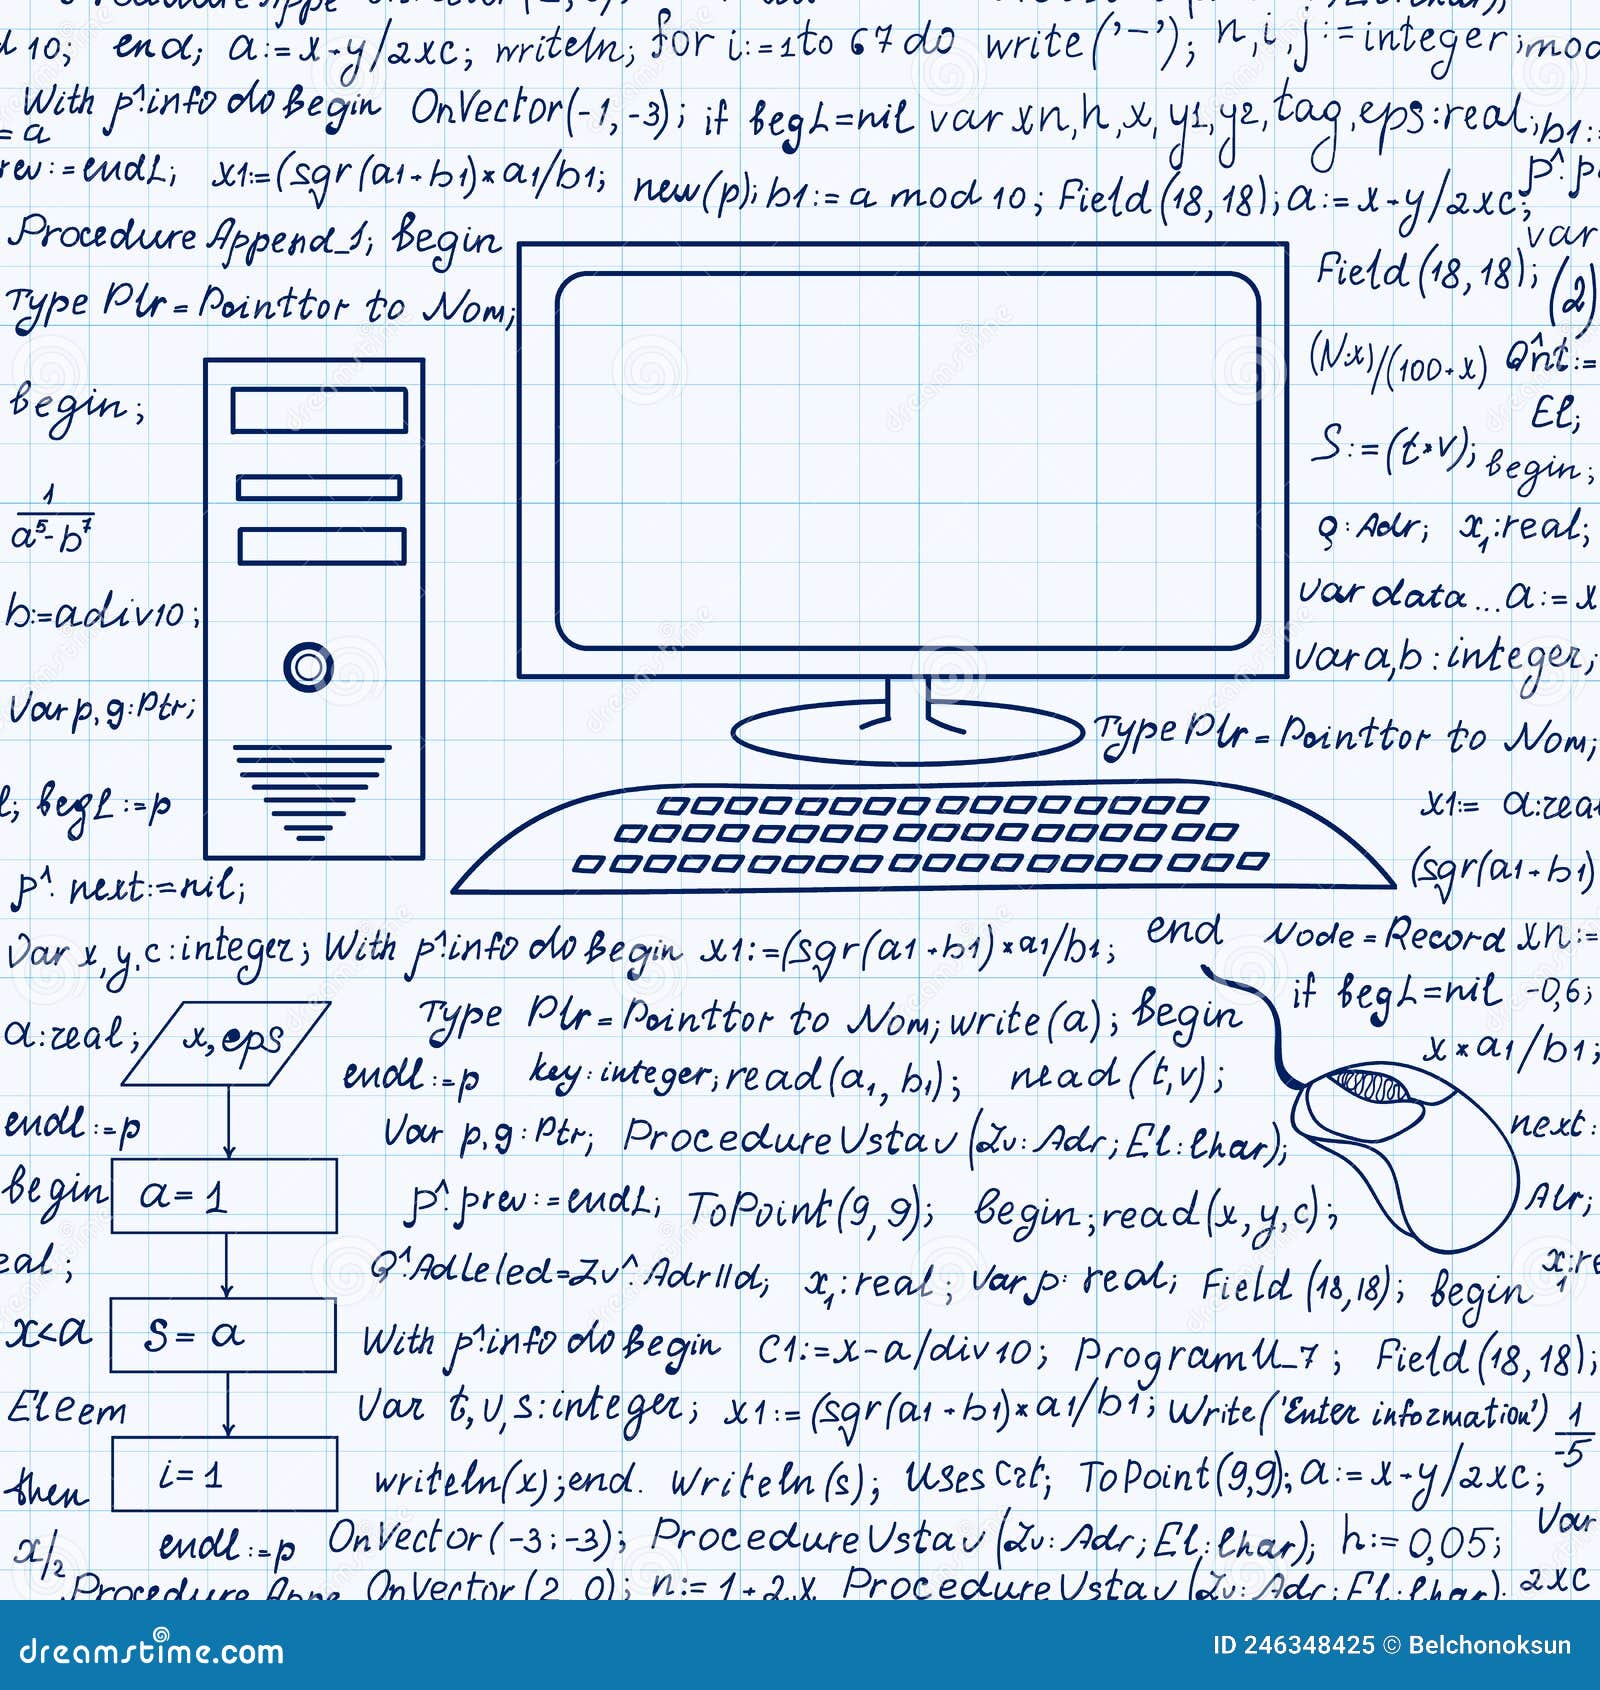 d 10; end; a:=x-y/2xc; writeln; for i:=1to 67 do write('-'); n,i,j:=integer; mod
With p^.info do begin OnVector(-1,-3); if begL=nil var xn,h,x,y1,y2,tag,eps:real; b1:
= a
rev:=endL; x1:=(sgr(a1-b1)*a1/b1; new(p); b1:=a mod 10; Field(18,18); a:=x-y/2xc; p^.p
Procedure Append_1; begin
var
Type Plr=Pointtor to Nom;
Field(18,18); (2)
(N:x)/(100-x) Q^nt:=
begin;
El;
S:=(t*v); begin;
1
a⁵-b⁷
Q:Adr; x₁:real;
b:=adiv10;
var data...a:=x
var a,b:integer;
Var p,g:Ptr;
Type Plr=Pointtor to Nom;
l; begL:=p
x1:= a:real
p^.next:=nil;
(sgr(a1-b1)
Var x,y,c:integer; With p^.info do begin x1:=(sgr(a1-b1)*a1/b1; end Node=Record xn:=
if begL=nil -0,6;
a:real; x,eps
Type Plr=Pointtor to Nom; write(a); begin
x*a1/b1;
endl:=p key:integer; read(a₁,b₁); read(t,v);
endl:=p
Var p,g:Ptr; Procedure Ustav(Zv:Adr;El:Char); next:
begin a=1
p^.prev:=endL; ToPoint(9,9); begin; read(x,y,c); Alr;
eal;
Q^.AdLeled=Zv^.Adrlld; x₁:real; Var p:real; Field(18,18); begin x₁:re
x<a S=a
With p^.info do begin C1:=x-a/div10; Program U_7; Field(18,18);
Eleem
Var t,v,s:integer; x1:=(sgr(a1-b1)*a1/b1; Write('Enter information') 1
-5
i=1
then
writeln(x);end. Writeln(s); Uses Crt; ToPoint(9,9); a:=x-y/2xc;
Var
x/2 endl:=p OnVector(-3:-3); Procedure Ustav(Zv:Adr;El:Char); h:=0,05;
Procedure Appe OnVector(2,0); n:=1+2.x Procedure Ustav(Zv:Adr;El:Char). 2xc
dreamstime.com
ID 246348425 © Belchonoksun